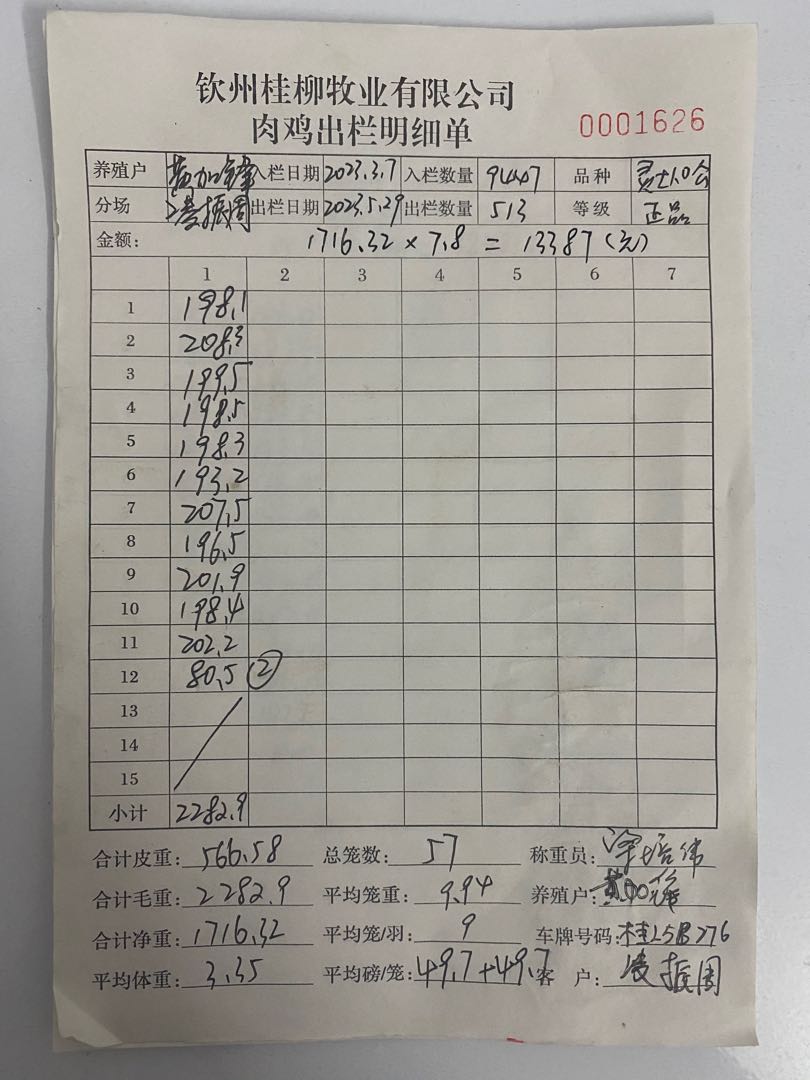 钦州桂柳牧业有限公司
肉鸡出栏明细单 0001626
养殖户 黄加锋 入栏日期 2023.3.7 入栏数量 9447 品种
分场 凌振周 出栏日期 2023.5.29 出栏数量 513 等级 正品
金额: 1716.32 × 7.8 = 13387(元)
1 2 3 4 5 6 7
1 198.1
2 208.3
3 199.5
4 198.5
5 198.3
6 193.2
7 207.5
8 196.5
9 201.9
10 198.4
11 202.2
12 80.5 ②
13
14
15
小计 2282.9
合计皮重: 566.58 总笼数: 57 称重员:
合计毛重: 2282.9 平均笼重: 9.94 养殖户: 黄加锋
合计净重: 1716.32 平均笼/羽: 9 车牌号码: 桂L5B276
平均体重: 3.35 平均磅/笼: 49.7+49.7 客 户: 凌振周